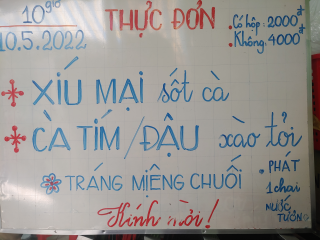 10 giờ
10.5.2022
THỰC ĐƠN
Có hộp: 2000đ
Không: 4000đ
XÍU MẠI sốt cà
CÀ TÍM/ĐẬU xào tỏi
TRÁNG MIỆNG CHUỐI
PHÁT
1 chai
NƯỚC
TƯƠNG
Kính mời!